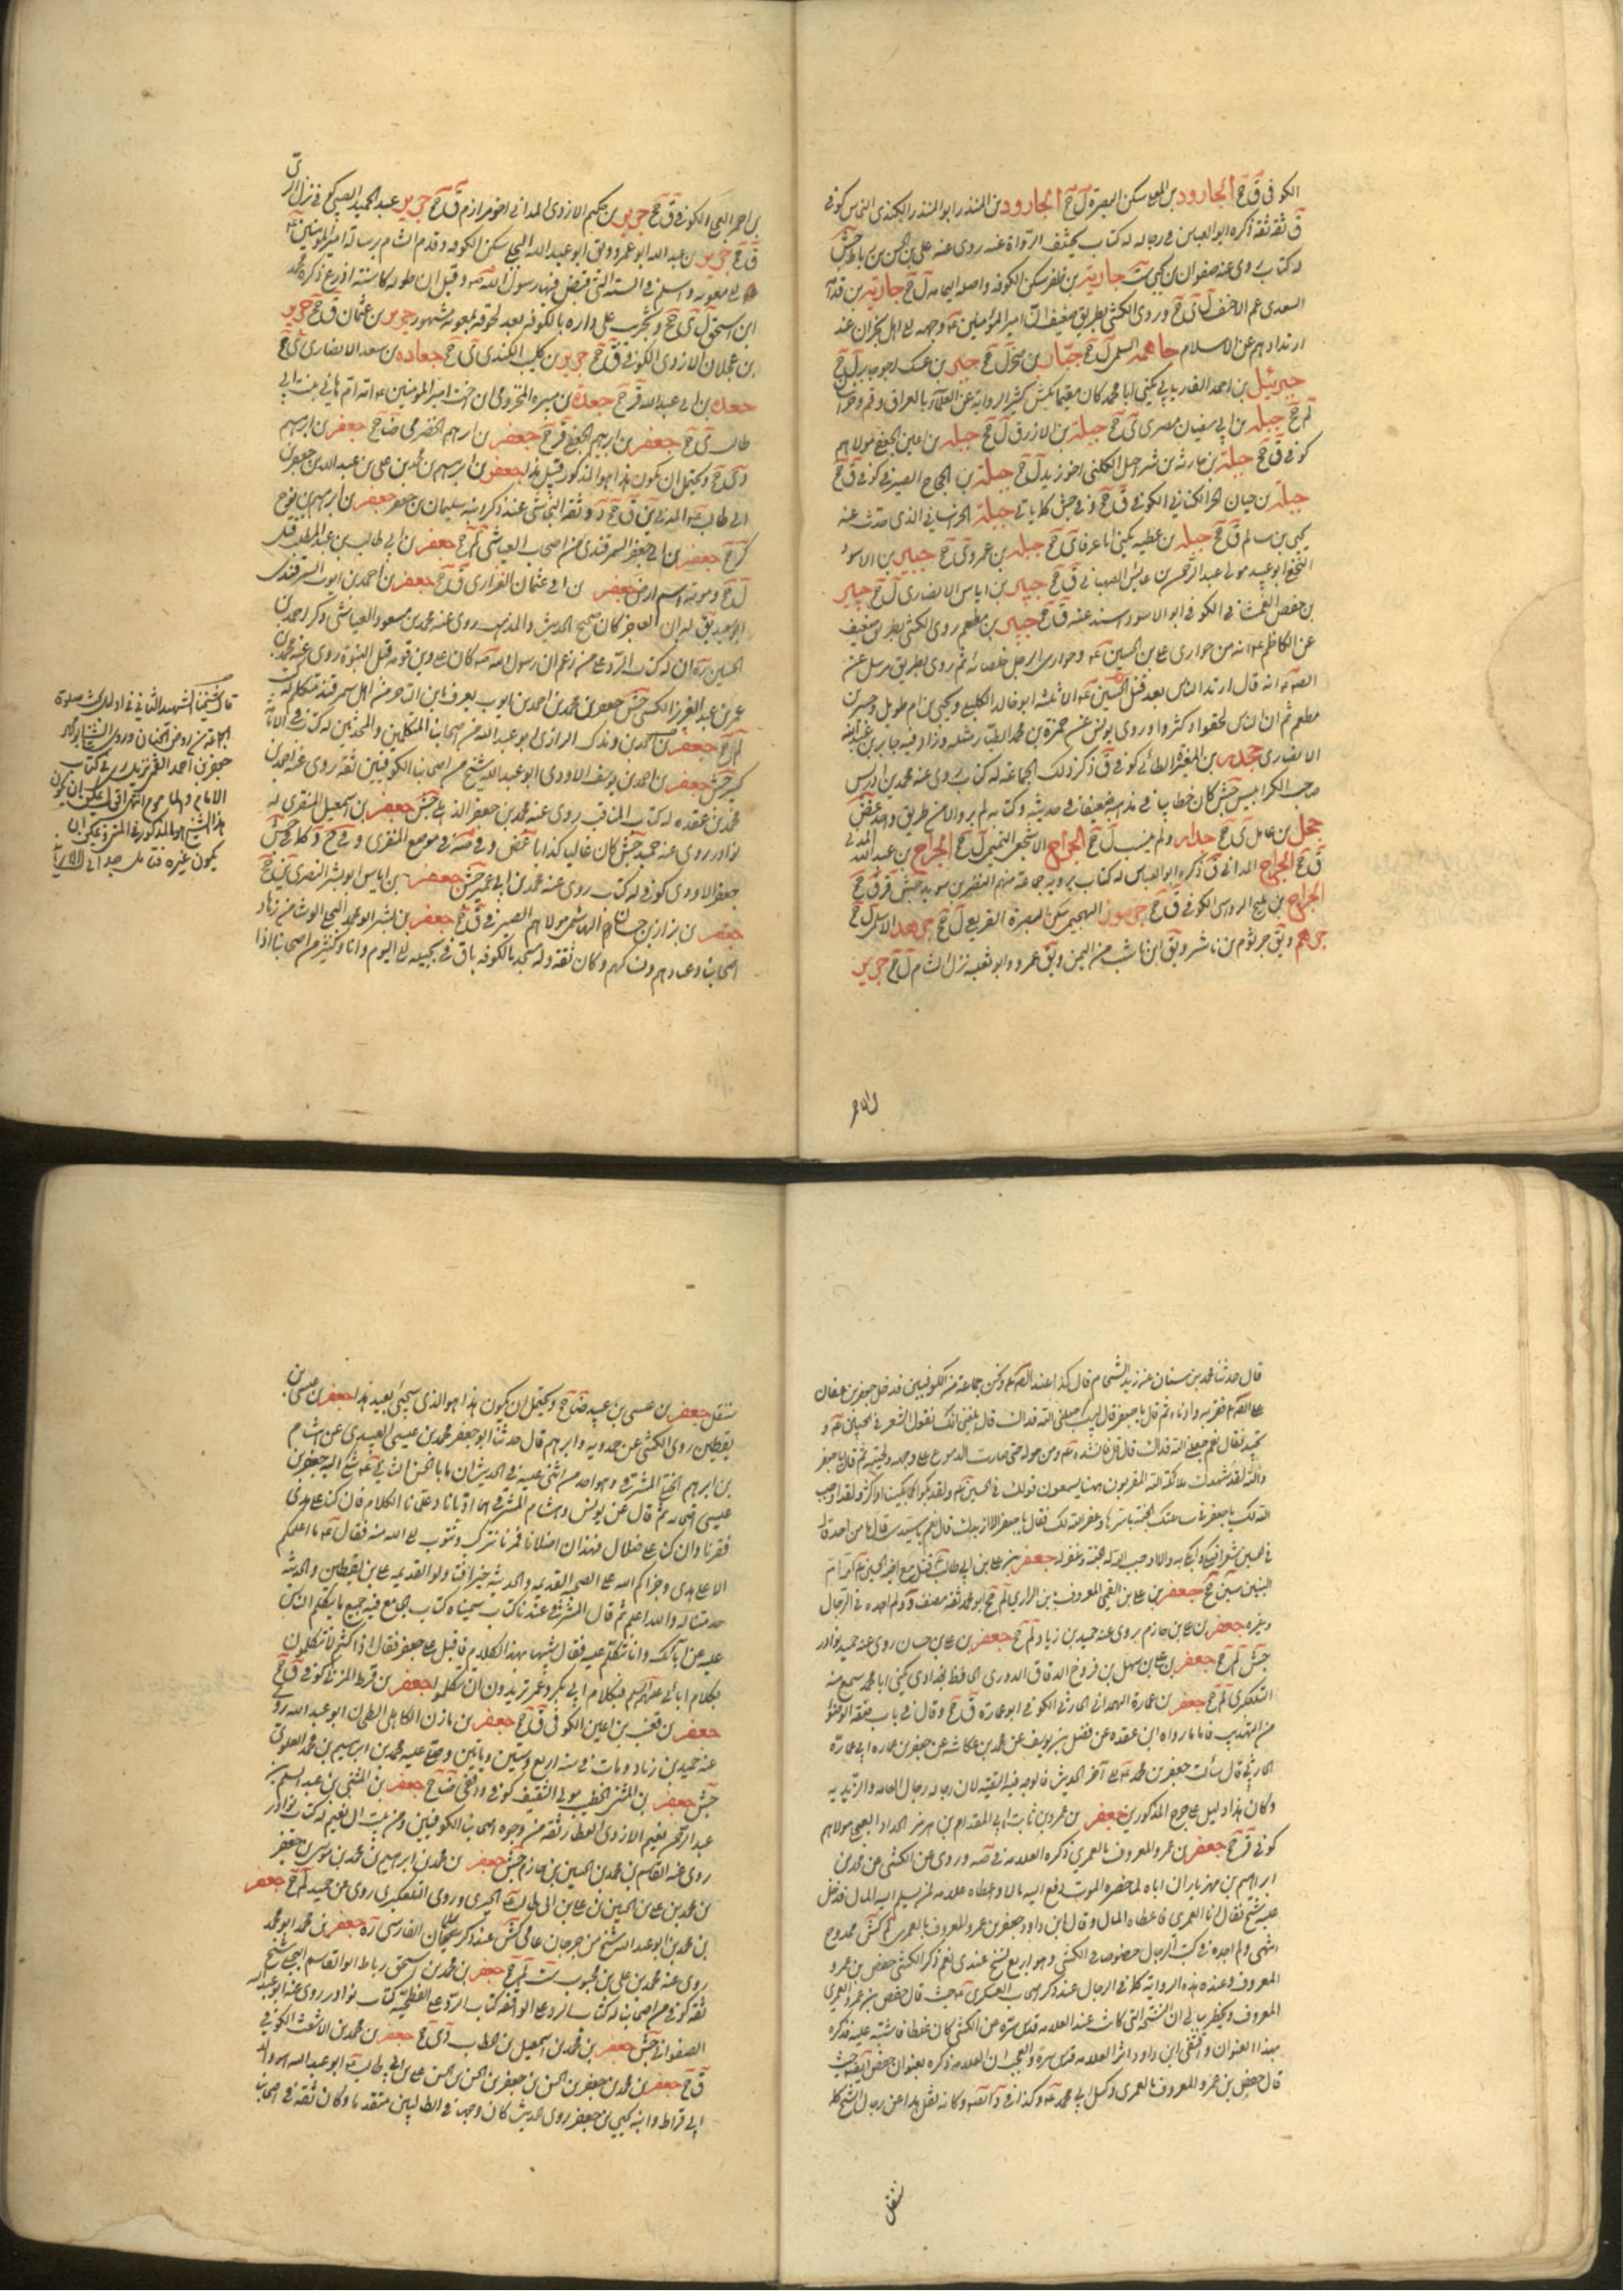 الكوفى ق ج الجارود بن المعلى سكن البصرة ل ج الجارود بن المنذر ابو المنذر الكندى النحاس كوفى
ق ثقة ثقة ذكره ابو العباس فى رجاله له كتاب يختلف الرواة عنه روى عنه على بن الحسن بن رباط جش
له كتاب روى عنه صفوان بن يحيى ست جارية بن ظفر سكن الكوفه واصله اليمامه ل ج جارية بن قدامة
السعدى عم الاحنف ل ى ج وروى الكشى بطريق ضعيف ان امير المؤمنين وجهه الى اهل نجران عند
ارتدادهم عن الاسلام جاهمه السلمى ل ج جبار بن صخر ل ج جبر بن عتيك اخو جابر ل ج
جبرئيل بن احمد الفاريابى يكنى ابا محمد كان مقيما بكش كثير الرواية عن العلماء بالعراق وقم وخراسان
لم ج جبلة بن ابى سفيان مصرى ى ج جبلة بن الازرق ل ج جبلة بن اعين الجعفى مولاهم
كوفى ق ج جبلة بن حارثه بن شراحيل الكلبى اخو زيد ل ج جبلة بن الحجاج الصيرفى كوفى ق ج
جبلة بن حيان الكنانى الكوفى ق ج وفى جش كلاياتى جبلة الخراسانى الذى حدث عنه
يحيى بن سالم ق ج جبلة بن عطيه يكنى ابا عرفا ى ج جبلة بن عمرو ى ج جبير بن الاسود
النخعى ابو عبيد مولى عبد الرحمن بن عابس الصهبانى ق ج جبير بن اياس الانصارى ل ج جبير
بن حفص الغمشانى الكوفى ابو الاسود اسند عنه ق ج جبير بن مطعم روى الكشى بطريق ضعيف
عن الكاظم انه من حوارى على بن الحسين وحوارى الرجل خلصائه ثم روى بطريق مرسل عن
انه قال ارتد الناس بعد قتل الحسين الا ثلثه ابو خالد الكابلى ويحيى بن ام طويل وجبير بن
مطعم ثم ان الناس لحقوا وكثروا وروى يونس عن حمزة بن محمد الطيار مثله وزاد فيه جابر بن عبد الله
الانصارى جحدر بن المغيرة الطائى كوفى ق ذكر ذلك الجماعة له كتاب روى عنه محمد بن ادريس
صاحب الكرابيس جش كان خطابيا فى مذهبه ضعيفا فى حديثه وكتابه لم يرو الا من طريق واحد غض
جحل بن عامل ى ج جدار ولم ينسب ل ج الجراح الاشجعى التميمى ل ج الجراح بن عبد الله المدنى
ق ج الجراح المدائنى ق ذكره ابو العباس له كتاب يرويه جماعة منهم النضر بن سويد جش قر ق ج
الجراح بن مليح الرواسى الكوفى ق ج جرموز الهجيمى سكن البصرة القريعى ل ج جرهد الاسلمى ل ج
جرهم ويق جرثوم بن ناشر ويق ابن ناشب من اليمن ويق عمرو وابو ثعلبه نزل الشام ل ج جرير
بن احمر العجلى الكوفى ق ج جرير بن حكيم الازدى المدائنى اخو مرازم ق ج جرير بن عبد الحميد الضبى كوفى نزل الرى
ق ج جرير بن عبد الله ابو عمرو ويق ابو عبد الله البجلى سكن الكوفه وقدم الشام برسالة امير المؤمنين
الى معويه واسلم فى السنه التى قبض فيها رسول الله وقيل ان طوله كان ستة اذرع ذكره محمد
ابن اسحق ل ى ج وخرب على داره بالكوفه بعد لحوقه لمعويه مشهور جرير بن عثمان ق ج جرير
بن عجلان الازدى الكوفى ق ج جرير بن كليب الكندى ى ج جعاده بن سعد الانصارى ى ج
جعده بن ابى عبد الله قر ج جعدة بن هبيره المخزومى ابن اخت امير المؤمنين امه ام هانى بنت ابى
طالب ى ج جعفر بن ابرهيم الجعفى قر ج جعفر بن ابرهيم الحضرمى ضا ج جعفر بن ابرهيم
دى ج ويحتمل ان يكون هذا هو المذكور قبيل هذا جعفر بن ابرهيم بن محمد بن على بن عبد الله بن جعفر بن
ابى طالب المدنى ين ق ج وثقه النجاشى عند ذكر ابنه سليمان بن جعفر جعفر بن ابرهيم بن نوح
كر ج جعفر بن ابى جعفر السمرقندى من اصحاب العياشى لم ج جعفر بن ابى طالب بن عبد المطلب قتل
ل ج بموته جعفر بن ابى عثمان الفزارى ق ج جعفر بن احمد بن ايوب السمرقندى
ابو سعيد يق له ابن العاجز كان صحيح الحديث والمذهب روى عنه محمد بن مسعود العياشى ذكر احمد بن
الحسين ره ان له كتاب الرد على من زعم ان رسول الله كان على دين قومه قبل النبوة روى عنه محمد بن
عمر بن عبد العزيز الكشى جش جعفر بن محمد بن احمد بن ايوب يعرف بابن التاجر من اهل سمرقند متكلم له كتب
لم ج جعفر بن احمد بن وندك الرازى ابو عبد الله من اصحابنا المتكلمين والمحدثين له كتاب فى الامامة
كبير جش جعفر بن احمد بن يوسف الاودى ابو عبد الله شيخ من اصحابنا الكوفيين ثقة روى عنه احمد بن
محمد بن عقده له كتاب المناقب روى عنه محمد بن جعفر جش جعفر بن اسمعيل المنقرى له
نوادر روى عنه حميد جش كان غاليا كذابا غض وفى صه فى موضع المنقرى
جعفر الاودى كوفى له كتاب روى عنه محمد بن ابى عمير جش جعفر بن اياس ابو بشر النصرى ين ج
جعفر بن بزاز بن حسان الهاشمى مولاهم الصيرفى ق ج جعفر بن بشير ابو محمد البجلى الوشا من زهاد
اصحابنا وعبادهم ونساكهم وكان ثقة وله مسجد بالكوفه باق فى بجيله الى اليوم وانا وكثير من اصحابنا اذا
قال شيخنا الشهيد الثانى فى اول بحث صلوة
الجماعة من روض الجنان وروى الشيخ ابو محمد
جعفر بن احمد القمى نزيل رى فى كتاب
الامام والماموم
هذا الشيخ هو المذكور فى المتن ويمكن ان
يكون غيره
قال حدثنا محمد بن سنان عن زيد الشحام قال كنا عند ونحن جماعة من الكوفيين فدخل جعفر بن عفان
على فقربه وادناه ثم قال يا جعفر قال لبيك جعلنى الله فداك قال بلغنى انك تقول الشعر فى الحسين و
تجيد فقال نعم جعلنى الله فداك قال قل فانشده ومن حوله حتى صارت الدموع على وجهه ولحيته ثم قال يا جعفر
والله لقد شهدت ملائكة الله المقربون ههنا يسمعون قولك فى الحسين ولقد بكوا كما بكينا او اكثر ولقد اوجب
الله لك يا جعفر فى ساعتك الجنة باسرها وغفر الله لك فقال يا جعفر الا ازيدك قال نعم يا سيدى قال ما من احد قال
فى الحسين شعرا فبكى وابكى به الا اوجب الله له الجنة وغفر له جعفر بن على بن ابى طالب قتل مع اخيه الحسين امه ام
البنين سين ج جعفر بن على بن القمى المعروف بابن الرازى لم ج ابو محمد ثقة مصنف ولم اجده فى الرجال
وغيره جعفر بن على بن حازم يروى عنه حميد بن زياد لم ج جعفر بن على بن حسان روى عنه حميد نوادر
جش لم ج جعفر بن على بن سهل بن فروخ الدقاق الدورى الحافظ بغدادى يكنى ابا محمد سمع منه
التلعكبرى لم ج جعفر بن عمارة الهمدانى الخارفى الكوفى ابو عمارة ق ج وقال فى باب صفة الوضوء
من التهذيب فاما ما رواه ابن عقده عن فضل بن يوسف عن محمد بن عكاشه عن جعفر بن عماره ابى عمارة
الحارثى قال سألت جعفر بن محمد الى آخر الحديث فالوجه فيه التقية لان رجاله رجال العامه والزيديه
وكان هذا دليل على جرح المذكورين جعفر بن عمرو بن ثابت ابى المقدام بن هرمز الحداد العجلى مولاهم
كوفى قر ج جعفر بن عمرو المعروف بالعمرى ذكره العلامه فى صه وروى عن الكشى عن محمد بن
ابراهيم بن مهزيار ان اباه لما حضره الموت دفع اليه مالا واعطاه علامه لمن يسلم اليه المال فدخل
عليه شيخ فقال انا العمرى فاعطاه المال وقال ابن داود جعفر بن عمرو المعروف بالعمرى لم كش ممدوح
انتهى ولم اجده فى كتب الرجال خصوصا فى الكشى وهو اربع نسخ عندى نعم ذكر الكشى حفص بن عمرو
المعروف وعنده هذه الرواية كما فى الرجال عند ذكر اصحاب العسكرى حيث قال حفص بن عمرو العمرى
المعروف ويخطر ببالى ان النسخه التى كانت عند العلامه قدس سره من الكشى كان غلطا فاشتبه عليه فذكره
بهذا العنوان واقتفى ابن داود اثر العلامه قدس سره والعجب ان العلامه ذكره بعنوان حفص ايضا حيث
قال حفص بن عمرو المعروف بالعمرى وكيل ابى محمد وكذا فى وكانه نقل هذا عن رجال الشيخ كما
سننقل جعفر بن عيسى بن عبيد ضا ج ويحتمل ان يكون هذا هو الذى سيجئ بعيد هذا جعفر بن عيسى بن
يقطين روى الكشى عن حمدويه وابرهيم قال حدثنا ابو جعفر محمد بن عيسى العبيدى عن هشام
بن ابرهيم الختلى المشرقى وهو احد من اثنى عليه فى الحديث ان ابا الحسن الثانى شكى اليه جعفر بن
عيسى اصحابه ثم قال عن يونس وهشام المشرقى هما ادبانا وعلمانا الكلام فان كنا على هدى
فقرنا وان كنا على ضلال فهذان اضلانا فمرنا نترك ونتوب الى الله منه فقال ما اعلمكم
الا على هدى وجزاكم الله على الصحبة القديمه والحديثه خيرا فتاولوا القديمه على بن يقطين والحديثه
خدمتنا له والله اعلم ثم قال المشرقى عندنا كتاب سميناه كتاب الجامع فيه جميع ما يتكلم الناس
عليه عن ابائك وانما نتكلم عليه فقال شبيها بهذا الكلام فاقبل على جعفر فقال اذا كنتم لا تتكلمون
بكلام ابائى عليهم السلم فبكلام ابى بكر وعمر تريدون ان تتكلموا جعفر بن قرط المزنى كوفى ق ج
جعفر بن قعنب بن اعين الكوفى ق ج جعفر بن مازن الكاهلى الطحان ابو عبد الله روى
عنه حميد بن زياد ومات فى سنه اربع وستين ومائتين وصلى عليه محمد بن ابرهيم بن محمد العلوى
جش جعفر بن المثنى الخطيب مولى لثقيف كوفى واقفى ضا ج جعفر بن المثنى بن عبد السلم بن
عبد الرحمن بن نعيم الازدى العطار ثقة من وجوه اصحابنا الكوفيين ومن بيت ال نعيم له كتاب نوادر
روى عنه القاسم بن محمد بن الحسين بن حازم جش جعفر بن محمد بن ابرهيم بن محمد بن موسى بن جعفر
بن محمد بن على بن الحسين بن على بن ابى طالب الحيرى وروى التلعكبرى روى عن حميد لم ج جعفر
بن محمد بن ابو عبد الله شيخ من جرجان عامى كش عند ذكر سلمان الفارسى ره جعفر بن محمد ابو محمد
روى عنه محمد بن على بن محبوب ست لم ج جعفر بن محمد بن اسحق بن رباط ابو القاسم البجلى شيخ
ثقة كوفى من اصحابنا له كتاب الرد على الواقفه كتاب الرد على الفطحيه كتاب نوادر روى عنه ابو عبد الله
الصفوانى جش جعفر بن محمد بن اسمعيل بن الخطاب دى ج جعفر بن محمد بن الاشعث الكوفى
ق ج جعفر بن محمد بن جعفر بن الحسن بن جعفر بن الحسن بن الحسن بن على بن ابى طالب ابو عبد الله هو والد
ابى قراط وابنه يحيى بن جعفر روى الحديث كان وجها فى الطالبيين متقدما وكان ثقة فى اصحابنا
سننقل